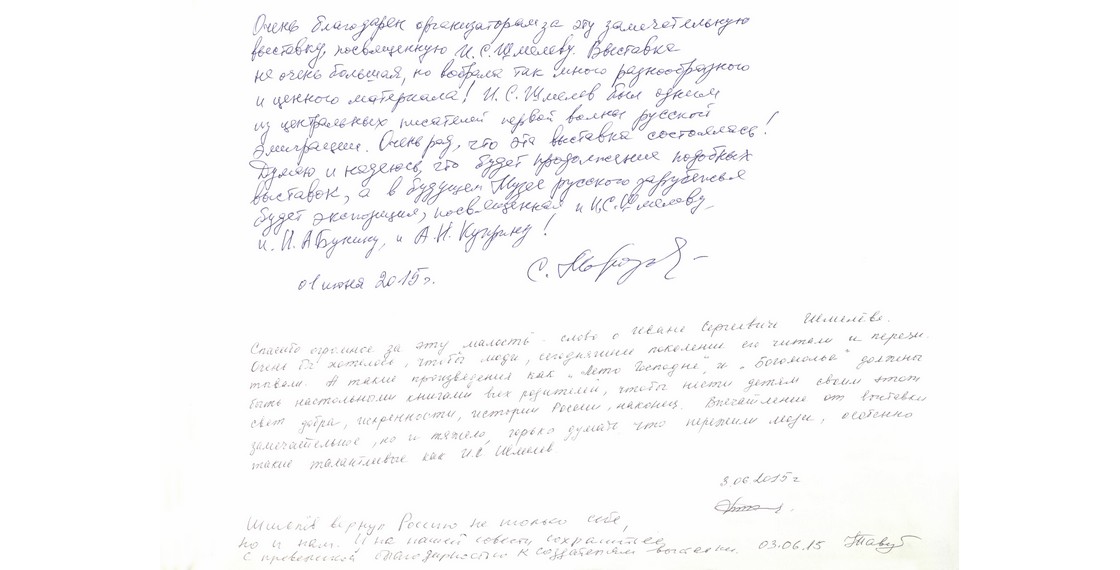 Очень благодарен организаторам за эту замечательную
выставку, посвященную И.С. Шмелеву. Выставка
не очень большая, но вобрала так много разнообразного
и ценного материала! И.С. Шмелев был одним
из центральных писателей первой волны русской
эмиграции. Очень рад, что эта выставка состоялась!
Думаю и надеюсь, что будет продолжение подобных
выставок, а в будущем Музее русского зарубежья
будет экспозиция, посвященная и И.С. Шмелеву,
и И.А. Бунину, и А.И. Куприну!
01 июня 2015г. С.
Спасибо огромное за эту малость - слово о Иване Сергеевиче Шмелёве.
Очень бы хотелось, чтобы люди, сегодняшнее поколение его читали и перечи-
тывали. А такие произведения как "Лето Господне", и "Богомолье" должны
быть настольными книгами всех родителей, чтобы нести детям своим этот
свет добра, искренности, истории России, наконец. Впечатление от выставки
замечательное, но и тяжело, горько думать что пережили люди, особенно
такие талантливые как И.С. Шмелев
3.06.2015г
Шмелёв вернул Россию не только себе,
но и нам. И на нашей совести сохранить ее
С благодарностью к создателям выставки. 03.06.15